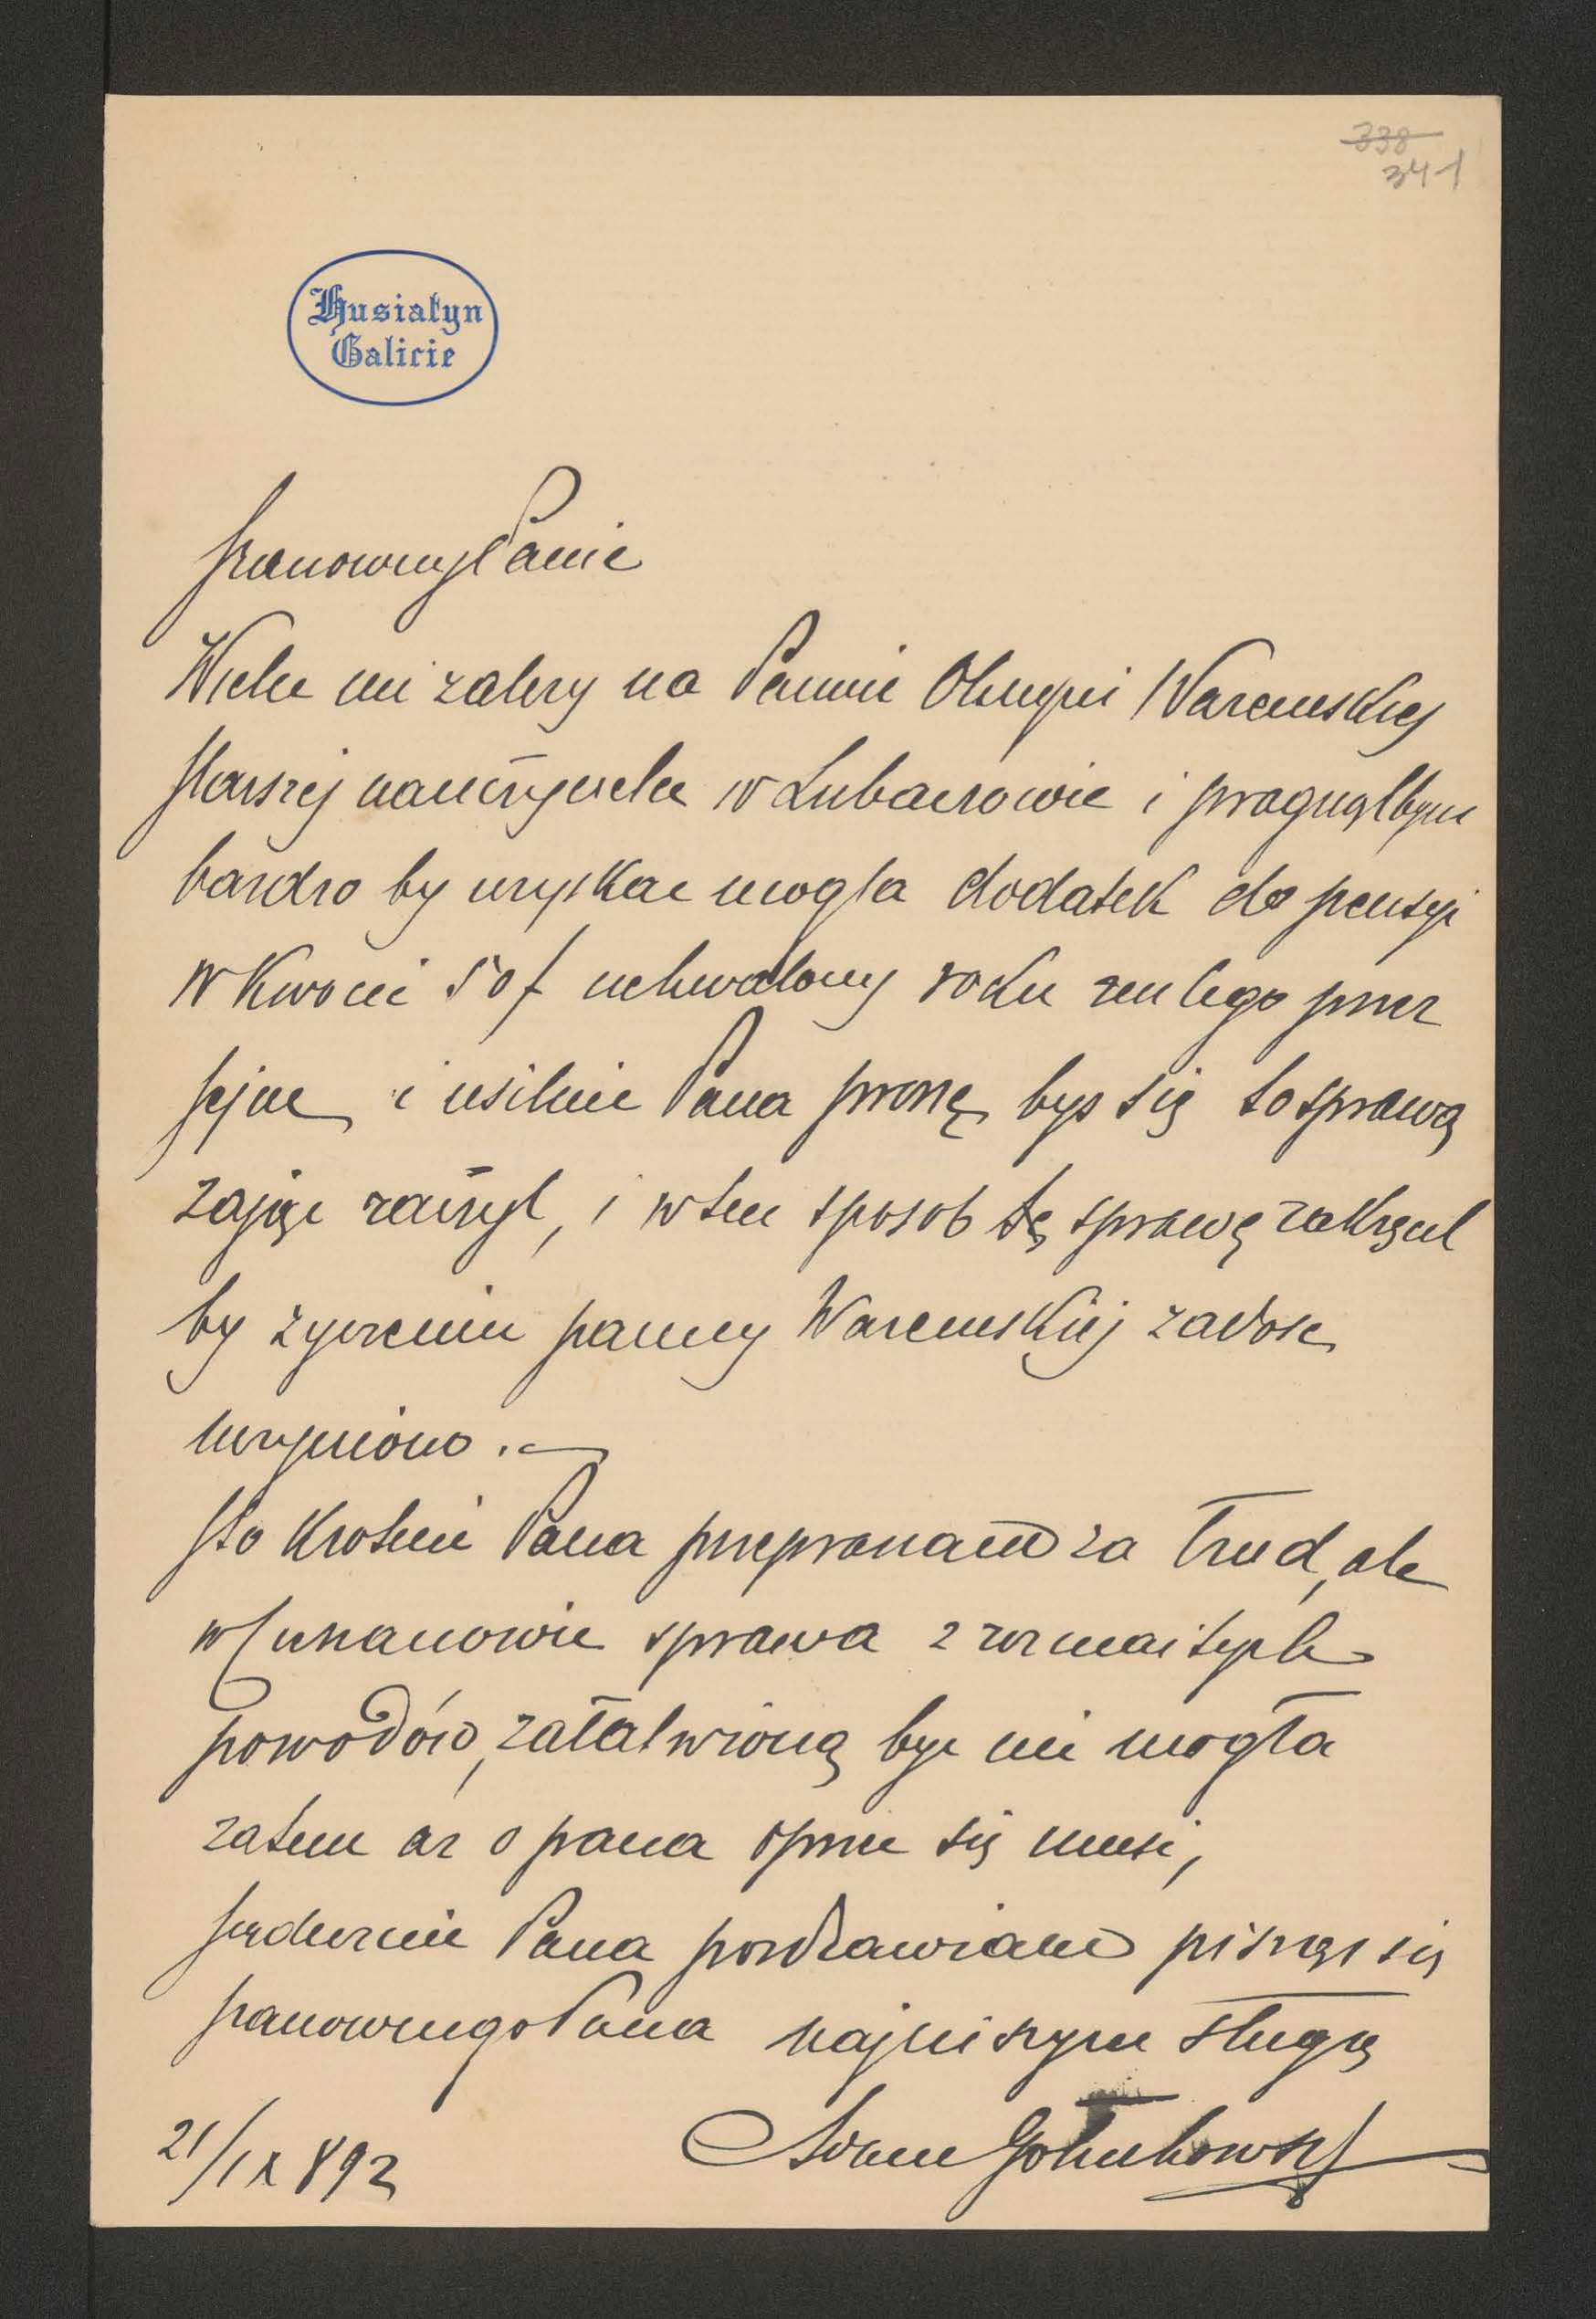 338
341
Husiatyn
Galicie
Szanowny Panie
Wiele mi zalezy na Pannie Olimpii Waremskiej
starszej nauczycielce w Lubaczowie i pragnąłbym
bardzo by uzyskac mogła dodatek do pensyi
w kwocie 50 f uchwalony roku zeszlego przez
sejm i usilnie Pana proszę bys się tą sprawą
zając raczył, i w ten sposob tę sprawę
by zyczeniu panny Waremskiej zadosc
uczyniono. –
Sto krotnie Pana przepraszam za trud, ale
w sprawa z rozmaitych
powodów, załatwioną byc nie mogła
zatem az o pana oprzec się musi,
serdecznie Pana pozdrawiam pisząc się
szanownego Pana najnizszym sługą
21/IX 892
Adam Gołuchowski